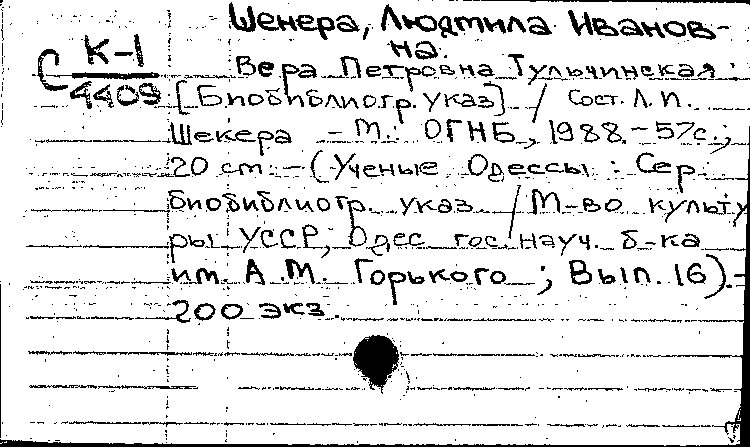 Шенера, Людмила Иванов-
на.
С К-1
4409
Вера Петровна Тульчинская:
[Биобиблиогр. указ] / Сост. Л. П.
Шекера - М.: ОГНБ, 1988. - 57с.;
20 cm. - (Ученые Одессы: Сер.
биобиблиогр. указ. / М-во культу
ры УССР, Одес. гос. науч. б-ка
им. А.М. Горького; Вып. 16). -
200 экз.